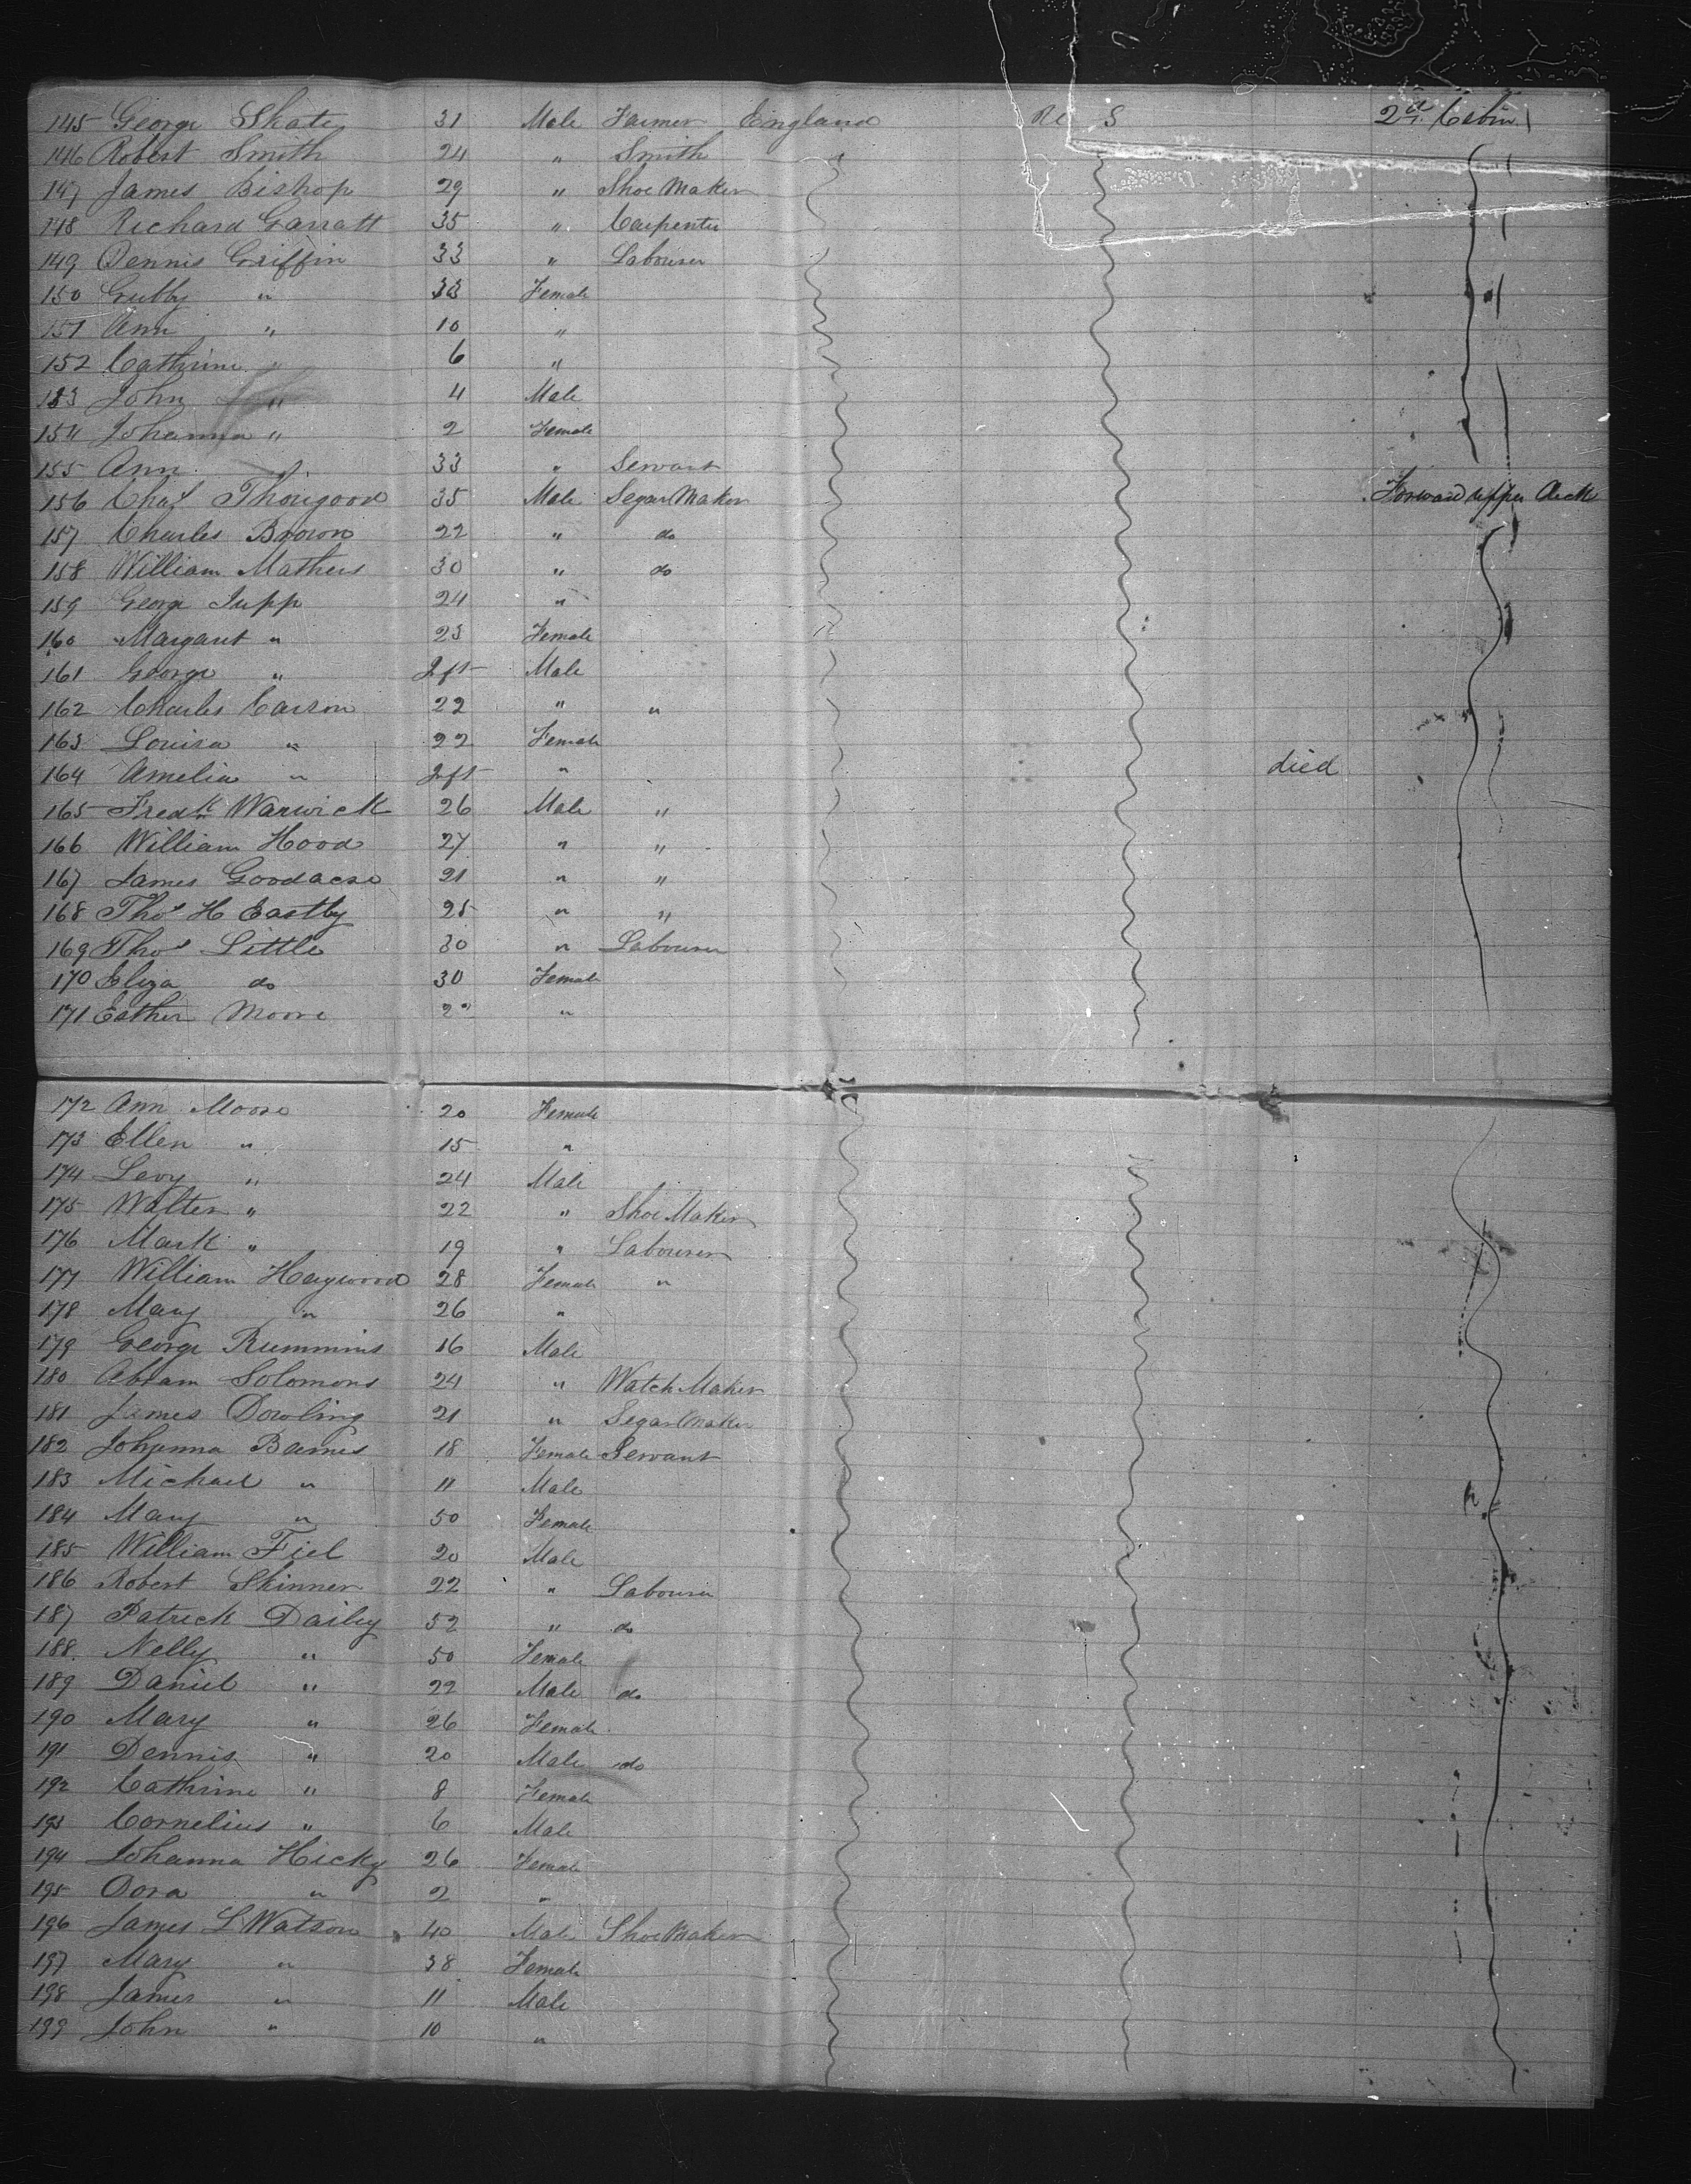 145 George Skate 31 Male Farmer England S 2d Cabin
146 Robert Smith 24 " Smith "
147 James Bishop 29 " Shoe Maker
148 Richard Garratt 35 " Carpenter
149 Dennis Griffin 33 " Labourer
150 Gubby " 33 Female
151 Ann " 10 "
152 Cathrine " 6 "
153 John " 4 Male
154 Johanna " 2 Female
155 Ann 33 " Servant
156 Chas Thorigood 35 Male Segar Maker Forward upper Deck
157 Charles Brown 22 " do
158 William Mathers 30 " do
159 George Jupp 24 "
160 Margaret " 23 Female
161 George " Inft Male
162 Charles Carson 22 " "
163 Louisa " 22 Female
164 Amelia " Inft " died
165 Fredk Warwick 26 Male "
166 William Hood 27 " "
167 James Goodacre 21 " "
168 Thos H Eastby 25 " "
169 Thos Little 30 " Labourer
170 Eliza do 30 Female
171 Esther Moore "
172 Ann Moore 20 Female
173 Ellen " 15 "
174 Levy " 24 Male
175 Walter " 22 " Shoe Maker
176 Mark " 19 " Labourer
177 William Haywood 28 Female "
178 Mary " 26 "
179 George Rummins 16 Male
180 Abram Solomons 24 " Watch Maker
181 James Dowling 21 " Segar Maker
182 Johanna Barnes 18 Female Servant
183 Michael " 11 Male
184 Mary " 50 Female
185 William Fiel 20 Male
186 Robert Skinner 22 " Labourer
187 Patrick Dailey 52 " do
188 Nelly " 50 Female
189 Daniel " 22 Male do
190 Mary " 26 Female
191 Dennis " 20 Male do
192 Cathrine " 8 Female
193 Cornelius " 6 Male
194 Johanna Hicky 26 Female
195 Dora " 2 "
196 James L Watson 40 Male Shoe Maker
197 Mary " 38 Female
198 James " 11 Male
199 John " 10 "